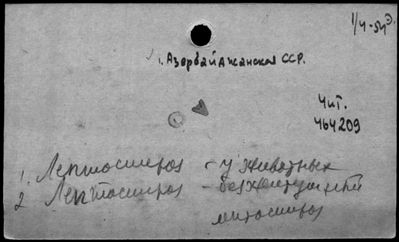 1/4-54
1. Азербайджанская ССР.
Чит.
464209
1. Лептоспироз - у животных
2 Лептоспироз - безжелтушный
лептоспироз